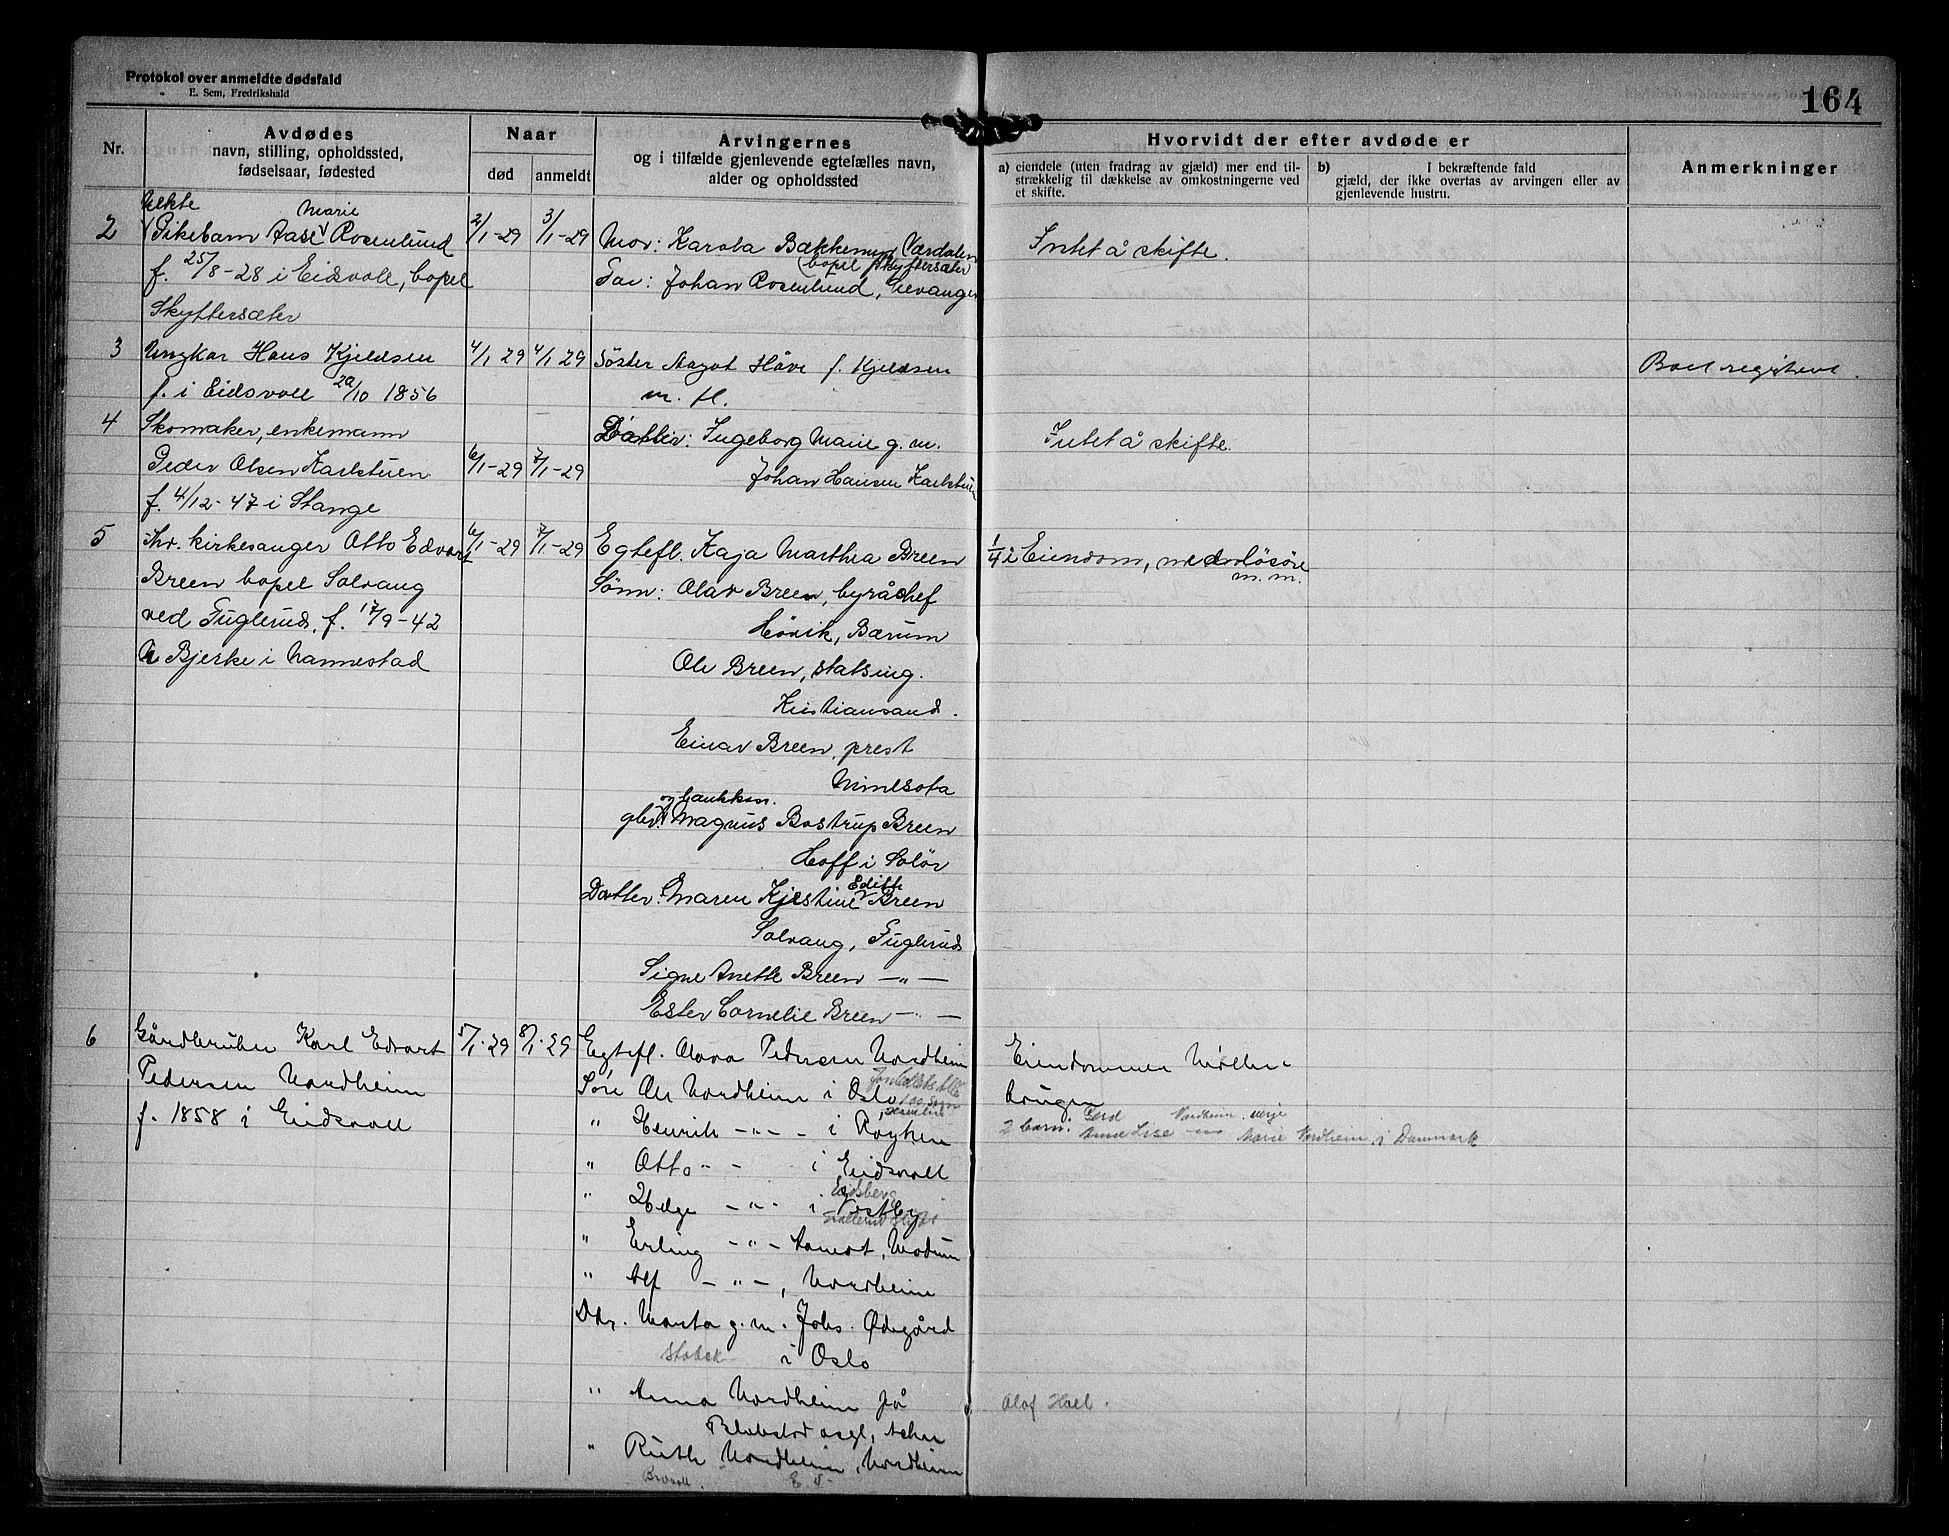 Protokol over anmeldte dødsfald
E. Sem, Fredrikshald
164
Nr.
Avdødes
navn, stilling, opholdssted,
fødselsaar, fødested
Naar
død
anmeldt
Arvingernes
og i tilfælde gjenlevende egtefælles navn,
alder og opholdssted
Hvorvidt der efter avdøde er
a) eiendele (uten fradrag av gjæld) mer end til-
strækkelig til dækkelse av omkostningerne ved
et skifte.
b) I bekræftende fald
gjæld, der ikke overtas av arvingen eller av
gjenlevende hustru.
Anmerkninger
2
Uekte
Pikebarn Aase Marie Rosenlund
f. 25/8-28 i Eidsvoll, bopel
Skyttersæter
2/1-29
3/1-29
Mor: Karola Bækkemyr Værdalen
(bopel Skyttersæter
Far: Johan Rosenlund, Levanger
Intet å skifte.
3
Ungkar Hans Kjeldsen
f. i Eidsvoll 29/10 1856
4/1 29
4/1 29
Søster Aagot Håve f. Kjeldsen
m. fl.
Boet registrert.
4
Skomaker, enkemann
Peder Olsen Karlstuen
f. 4/12-47 i Stange
6/1-29
7/1-29
Datter: Ingeborg Marie g. m.
Johan Hansen Karlstuen
Intet å skifte.
5
Fhv. kirkesanger Otto Edvart
Breen bopel Solvang
ved Fuglerud, f. 17/9-42
Bjerke i Nannestad
6/1-29
7/1-29
Egtefl. Kaja Marthea Breen
Sønn: Olav Breen, byråchef
Høvik, Bærum
Ole Breen, statsing.
Kristiansand.
Einar Breen, prest
Minesota
og bankkas.
gbr. Magnus Bostrup Breen
Hoff i Solør
Datter: Maren Kjestine Edith Breen
Solvang, Fuglerud
Signe Anette Breen — " —
Ester Cornelie Breen — " —
1/4 i Eiendom, med
m. m.
6
Gårdbruker Karl Edvart
Pedersen Nordheim
f. 1858 i Eidsvoll
5/1-29
8/1-29
Egtefl. Olava Pedersen Nordheim
Søn Ole Nordheim i Oslo
" Henrik — " — i Røyken
" Otto " - i Eidsvoll
Eidsberg
" Helge — " - i Vestby
" Erling — " — Åmot, Modum
" Alf — " —, Nordheim
Dtr. Marta g. m. Johs. Ødegård
Stabek i Oslo
" Anna Nordheim på
Blakstad asyl, Asker
" Ruth Nordheim, Nordheim
Eiendommen Møller-
krugen
2 barn: Gerd Nordheim. verje
Anne Lise — " — Marie Nordheim, i Danmark
Olaf Hoel.